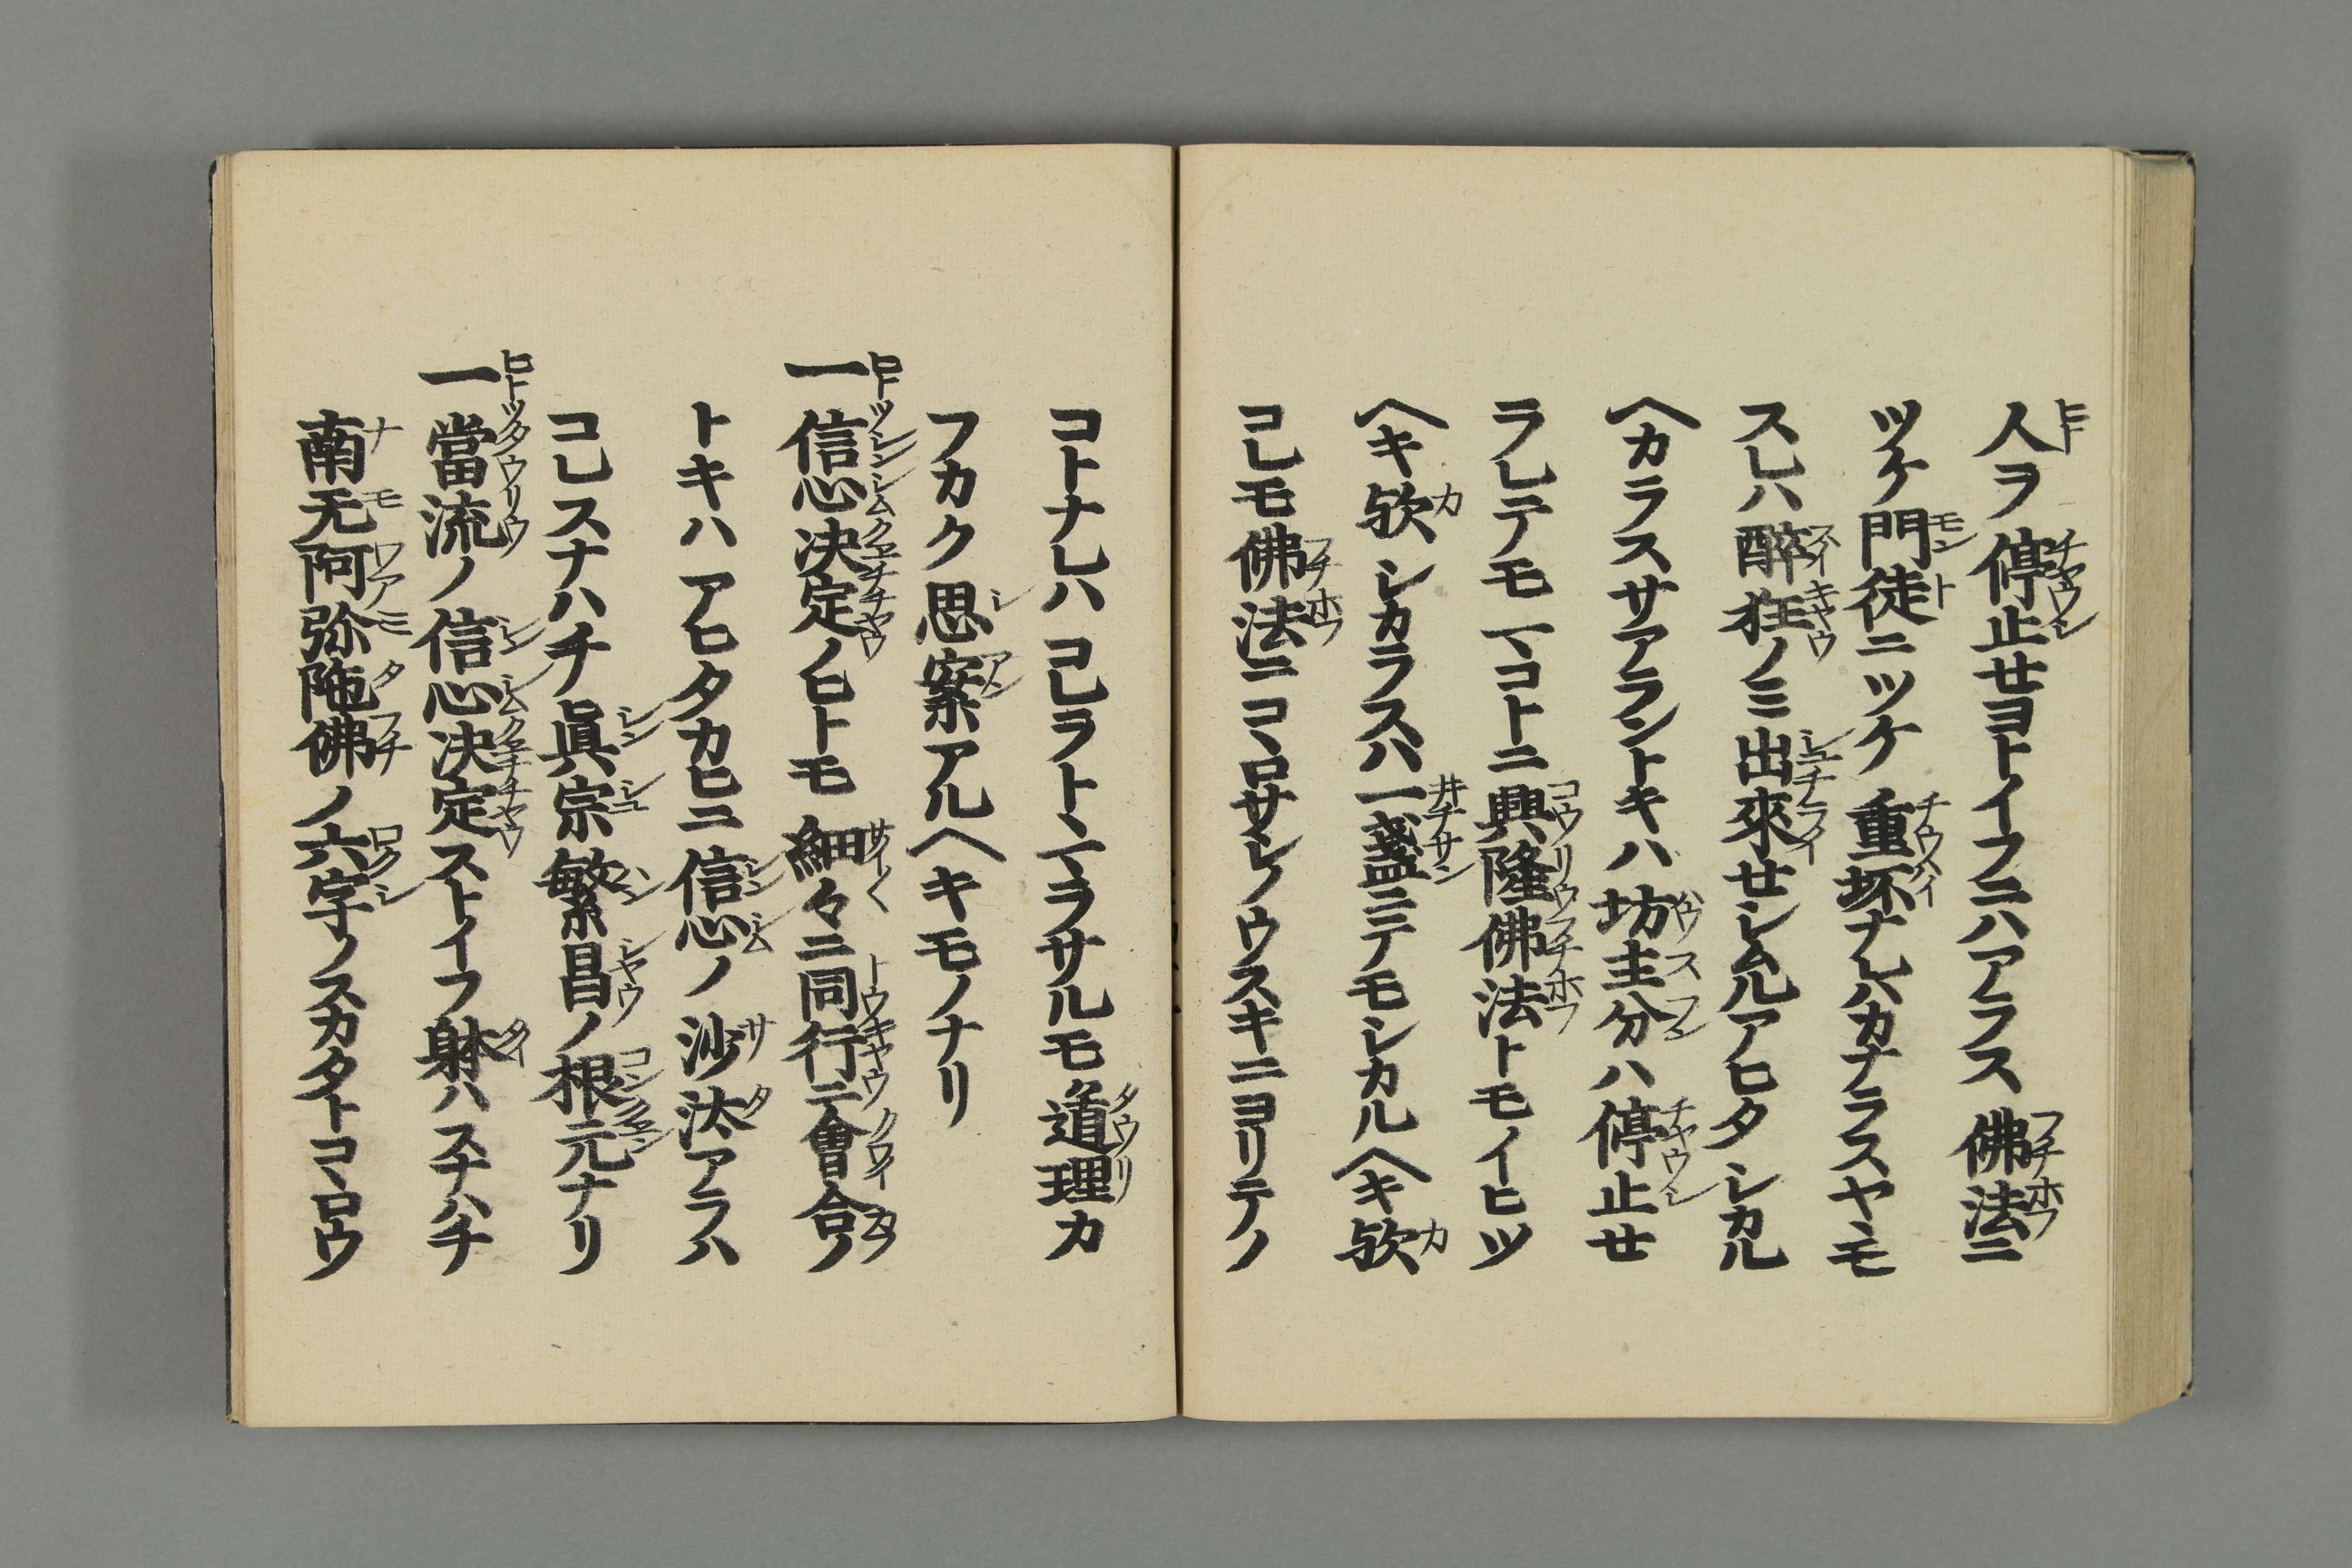 人ヲ停止セヨトイフニハアラス佛法ニ
ツケ門徒ニツケ重坏ナレハカナラスヤヽモ
スレハ醉狂ノミ出來セシムルアヒタシカル
ヘカラスサアラントキハ坊主分ハ停止セ
ラレテモマコトニ興隆佛法トモイヒツ
ヘキ歟シカラスハ一盞ニテモシカルヘキ歟
コレモ佛法ニコヽロサシノウスキニヨリテノ
コトナレハコレラトヽマラサルモ道理カ
フカク思案アルヘキモノナリ
一信心决定ノヒトモ細々ニ同行ニ會合ノ
トキハアヒタカヒニ信心ノ沙汰アラハ
コレスナハチ眞宗繁昌ノ根元ナリ
一當流ノ信心决定ストイフ躰ハスナハチ
南无阿弥陁佛ノ六字ノスカタトコヽロウ